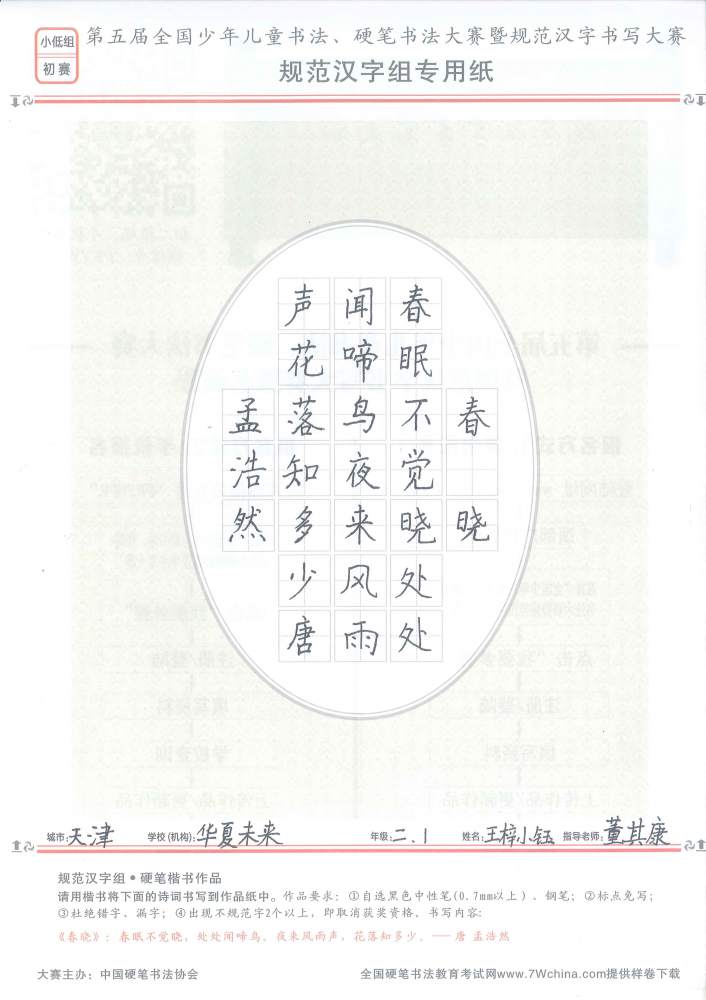 小低组
初赛
第五届全国少年儿童书法、硬笔书法大赛暨规范汉字书写大赛
规范汉字组专用纸
春晓
春眠不觉晓处处
闻啼鸟夜来风雨
声花落知多少唐
孟浩然
城市:天津 学校(机构):华夏未来 年级:二.1 姓名:王梓小钰 指导老师:董其康
规范汉字组•硬笔楷书作品
请用楷书将下面的诗词书写到作品纸中。作品要求：①自选黑色中性笔(0.7mm以上)、钢笔；②标点免写；
③杜绝错字、漏字；④出现不规范字2个以上，即取消获奖资格。书写内容:
《春晓》：春眠不觉晓，处处闻啼鸟。夜来风雨声，花落知多少。—— 唐 孟浩然
大赛主办：中国硬笔书法协会 全国硬笔书法教育考试网www.7Wchina.com提供样卷下载